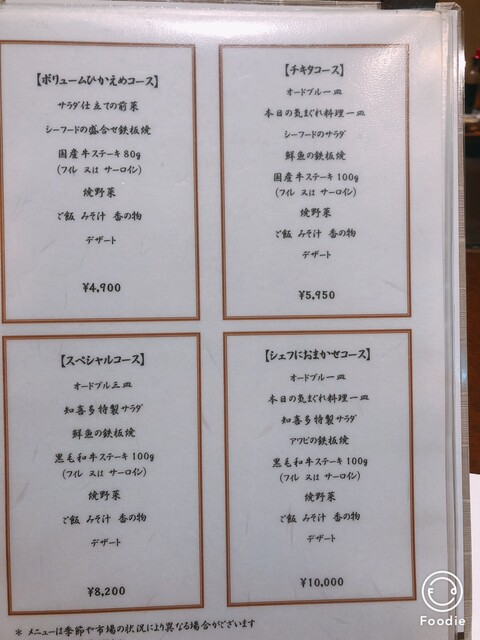 【ボリュームひかえめコース】
サラダ仕立ての前菜
シーフードの盛合せ鉄板焼
国産牛ステーキ 80g
(フィレ 又は サーロイン)
焼野菜
ご飯 みそ汁 香の物
デザート
¥4,900
【チキタコース】
オードブル一皿
本日の気まぐれ料理一皿
シーフードのサラダ
鮮魚の鉄板焼
国産牛ステーキ 100g
(フィレ 又は サーロイン)
焼野菜
ご飯 みそ汁 香の物
デザート
¥5,950
【スペシャルコース】
オードブル三皿
知喜多特製サラダ
鮮魚の鉄板焼
黒毛和牛ステーキ 100g
(フィレ 又は サーロイン)
焼野菜
ご飯 みそ汁 香の物
デザート
¥8,200
【シェフにおまかせコース】
オードブル一皿
本日の気まぐれ料理一皿
知喜多特製サラダ
アワビの鉄板焼
黒毛和牛ステーキ 100g
(フィレ 又は サーロイン)
焼野菜
ご飯 みそ汁 香の物
デザート
¥10,000
* メニューは季節や市場の状況により異なる場合がございます
Foodie